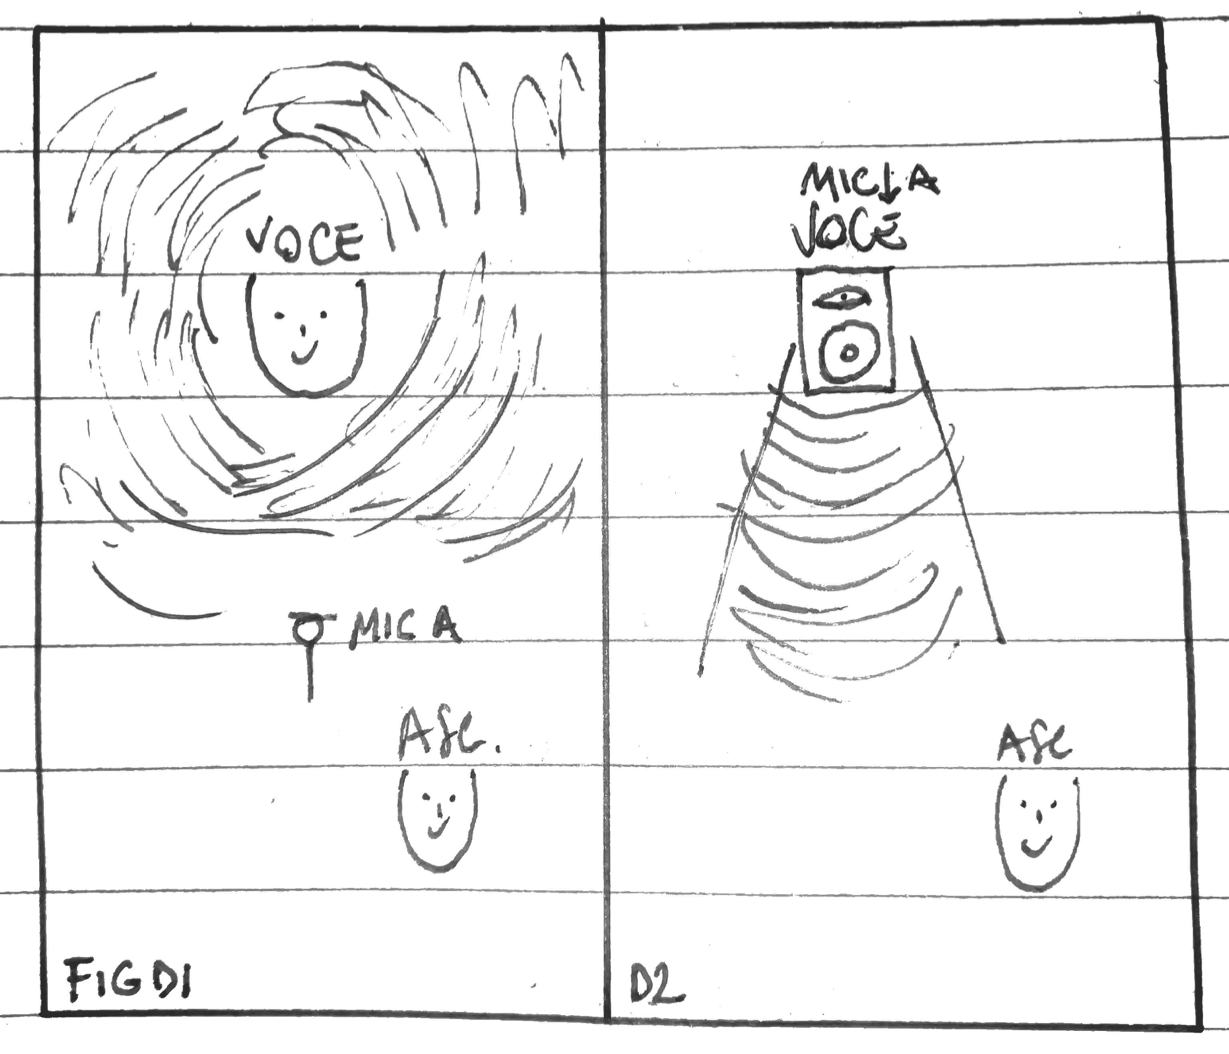 VOCE
MIC A
ASC.
FIG D1
MIC↓A
VOCE
ASC
D2